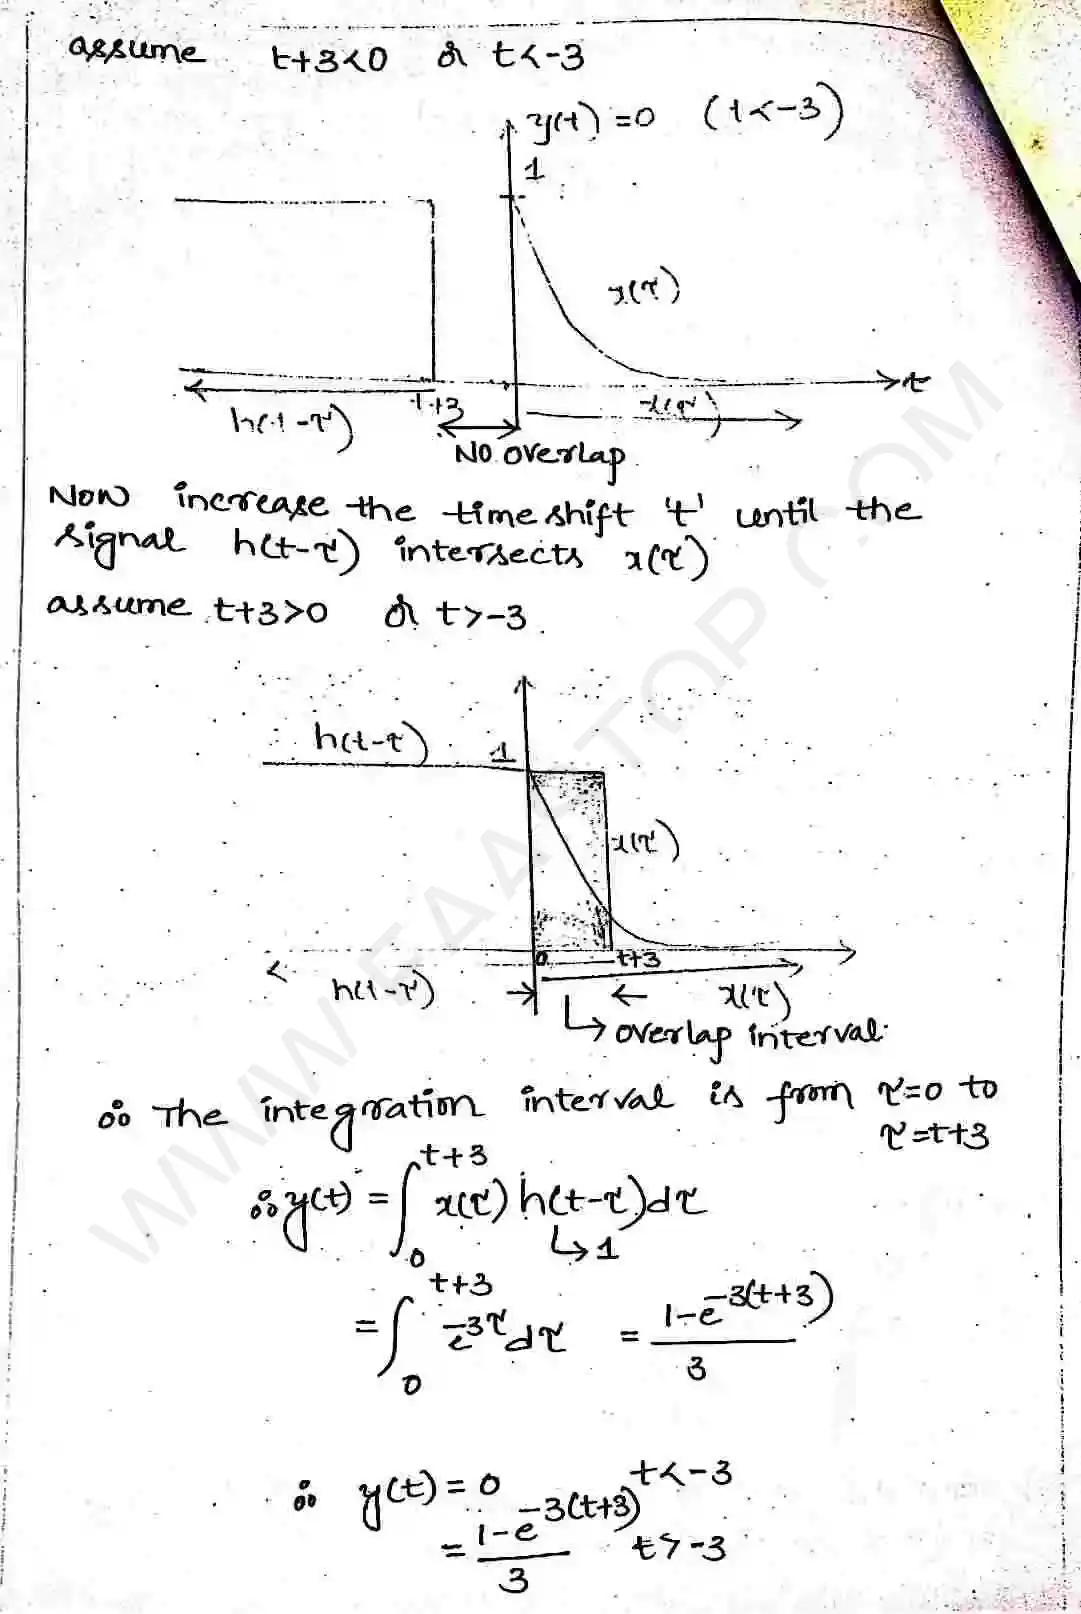 assume t+3<0 or t<-3
y(t)=0 (t<-3)
1
x(τ)
t
t+3
h(t-τ)
x(τ)
No overlap
Now increase the time shift 't' until the
signal h(t-τ) intersects x(τ)
assume t+3>0 or t>-3.
h(t-τ)
1
x(τ)
0
t+3
h(t-τ)
x(τ)
↳ overlap interval.
∴ The integration interval is from τ=0 to
τ=t+3
∴ y(t) = ∫₀^{t+3} x(τ) h(t-τ)dτ
↳1
= ∫₀^{t+3} e^{-3τ}dτ = \frac{1-e^{-3(t+3)}}{3}
∴ y(t) = 0 t<-3
= \frac{1-e^{-3(t+3)}}{3} t>-3